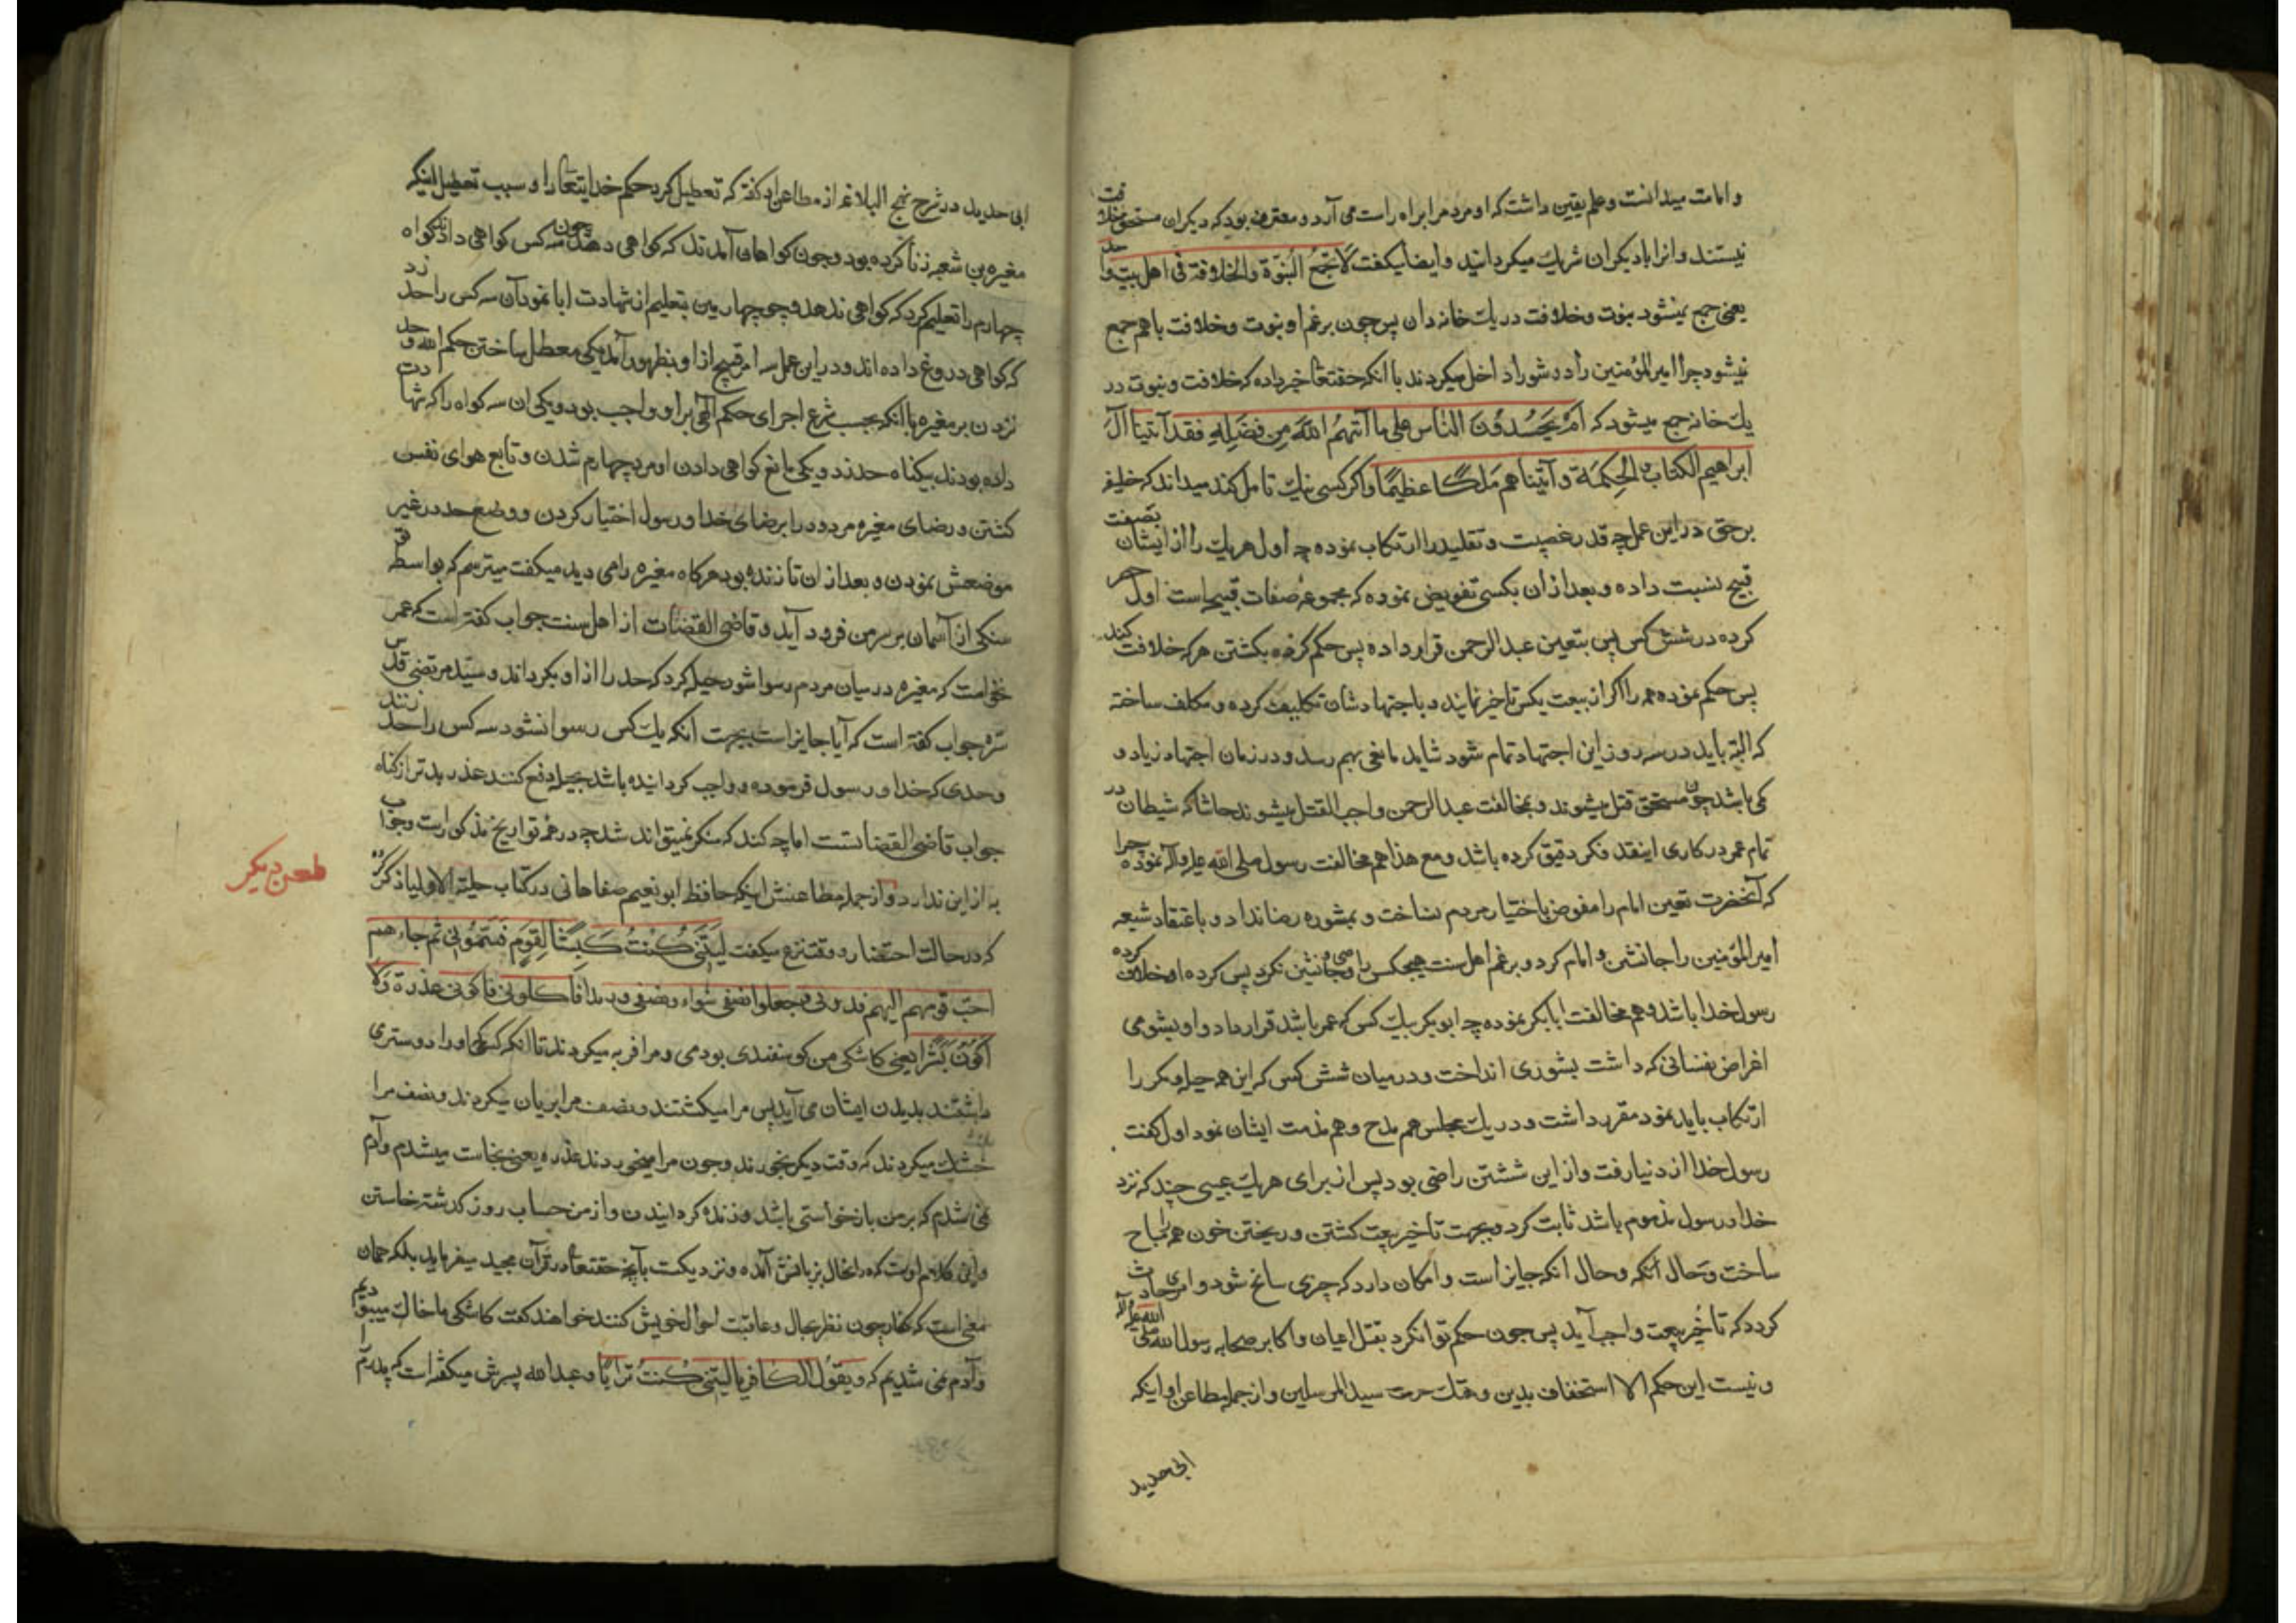 و امامت میدانست و علم یقین داشت که او مردم را براه راست می آرد و معترف بود که دیکران مستحق خلافت
نیستند و انرا با دیکران شریك میکردانید و ایضا میکفت لا تجتمع النبوة والخلافة فی اهل بیت واحد
یعنی جمع نمیشود نبوت و خلافت در یك خانه دان پس چون برغم او نبوت و خلافت باهم جمع
نمیشود چرا امیر المؤمنین را در شورا داخل میکردند با انکه حقتعا خبر داده که خلافت و نبوت در
یك خانه جمع میشود که ام یحسدون الناس علی ما آتیهم الله من فضله فقد آتینا آل
ابراهیم الکتاب والحکمة و آتیناهم ملکا عظیما و اکر کسی نیك تامل کند میداند که خلیفه
برحق در این عمل چه قدر غصبیت و تقلید را ارتکاب نموده چه اول هریك را از ایشان بصفت
قبیح نسبت داده و بعد از ان بکسی تفویض نموده که مجموعه صفات قبیحه است اول حصر
کرده در شش کس پس بتعین عبد الرحمن قرار داده پس حکم کرده بکشتن هرکه خلافت کند
پس حکم نموده همه را اکر از بیعت یکس تاخیر نمایند و باجتهادشان تکلیف کرده و مکلف ساخته
که البته باید در سه روز این اجتهاد تمام شود شاید مانعی بهم رسد و در زمان اجتهاد زیاد و
کمی باشد چون مستحق قتل میشوند و بمخالفت عبد الرحمن واجب القتل میشوند حاشا که شیطان در
تمام عمر در کاری اینقدر فکر دقیق کرده باشد و مع هذا هم مخالفت رسول صلی الله علیه وآله نموده چرا
که آنحضرت تعین امام را مفوض باختیار مردم نساخت و بمشوره رضا نداد و باعتقاد شیعه
امیر المؤمنین را جانشین و امام کرد و برغم اهل سنت هیچکس را وصی و جانشین نکرد پس کرده او خلاف کرده
رسول خدا باشد و هم مخالفت ابابکر نموده چه ابوبکر بیك کس که عمر باشد قرار داد و او بشومی
اغراض نفسانی که داشت بشوری انداخت و در میان شش کس که این همه حیله و مکر را
ارتکاب باید نمود مقرر داشت و در یك مجلس هم مدح و هم مذمت ایشان نمود اول کفت
رسول خدا از دنیا رفت و از این ششتن راضی بود پس از برای هریك عیبی چند که نزد
خدا و رسول مذموم باشد ثابت کرد و بجهت تاخیر بیعت کشتن و ریختن خون همه را مباح
ساخت و حال آنکه و حال آنکه جایز است و امکان دارد که چیزی سانح شود و امری حادث
کردد که تاخیر بیعت واجب آید پس چون حکم توانکرد بقتل اعیان و اکابر صحابه رسول الله صلی الله علیه وآله
و نیست این حکم الا استخفاف بدین و هتك حرمت سید المرسلین و از جمله مطاعن او اینکه
ابی حدید
ابی حدید در شرح نهج البلاغه از مطاعن او کفته که تعطیل کرد حکم خدایتعا را و سبب تعطیل اینکه
مغیره بن شعبه زنا کرده بود و چون کواهان آمدند که کواهی دهند چون سه کس کواهی دادند کواه
چهارم را تعلیم کرد که کواهی ندهد و چو چهارمین بتعلیم از شهادت ابا نمود آن سه کس را حد زد
که کواهی دروغ داده اند و در این عمل سه امر قبیح از او بظهور آمد یکی معطل ساختن حکم الله و حد
نزدن بر مغیره با انکه بحسب شرع اجرای حکم الهی بر او واجب بود و یکی ان سه کواه را که شهادت
داده بودند بیکناه حد زد و یکی مانع کواهی دادن او مرد چهارم شدن و تابع هوای نفس
کشتن و رضای مغیره مردود را برضای خدا و رسول اختیار کردن و وضع حد در غیر
موضعش نمودن و بعد از ان تا زنده بود هرکاه مغیره را می دید میکفت میترسم که بواسطه تو
سنکی از آسمان بر سر من فرود آید و قاضی القضات از اهل سنت جواب کفته است که عمر
نخواست که مغیره در میان مردم رسوا شود حیله کرد که حد را از او بکرداند و سید مرتضی قدس
سره جواب کفته است که آیا جایز است بجهت آنکه یك کس رسوا نشود سه کس را حد زنند
و حدی که خدا و رسول فرموده و واجب کردانیده باشد بحیله دفع کنند عذر بدتر از کناه
جواب قاضی القضاتست اما چه کند که منکر نمیتواند شد چه در همه تواریخ مذکور است و جواب
به از این ندارد و از جمله مطاعنش اینکه حافظ ابو نعیم صفاهانی در کتاب حلیة الاولیا ذکر کرده
طعن دیکر
که در حالت احتضار و وقت نزع میکفت لیتنی کنت کبشا لقوم فسمنونی ثم جاءهم
احب قومهم الیهم فذبحونی فجعلوا نصفی شواء و نصفی قدیدا فاکلونی فاکون عذرة ولا
اکون بشرا یعنی کاشکی من کوسفندی بودمی و مرا فربه میکردند تا انکه کسی که او را دوستری
داشتند بدیدن ایشان می آید پس مرا میکشتند و نصف مرا بریان میکردند و نصف مرا
خشك میکردند که وقت دیکر بخورند و چون مرا میخوردند عذره یعنی نجاست میشدم و آدم
نمی شدم که بر من بازخواستی باشد و زنده کردانیدن و از من حساب روز کذشته خاستن
و این کلام اوست که در انحال بزبانش آمده و نزدیکست بآنچه حقتعا در قرآن مجید میفرماید بلکه همان
معنی است که کفار چون نظر بحال و عاقبت احوال خویش کنند خواهند کفت کاشکی ما خاك میبودیم
و آدم نمی شدیم که ویقول الکافر یا لیتنی کنت ترابا و عبدالله پسرش میکفته است که پدرم را